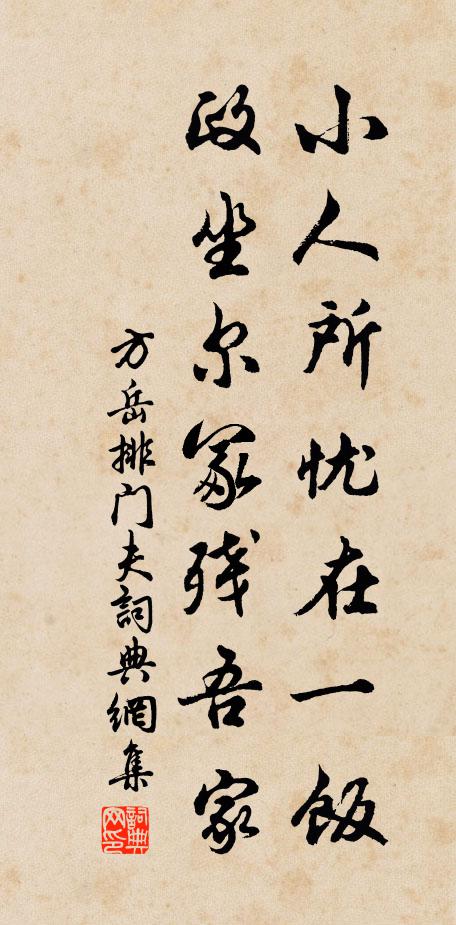 小人所忧在一饭
政坐尔冢残吾家
方岳排门夫詞典網集
詞典网印